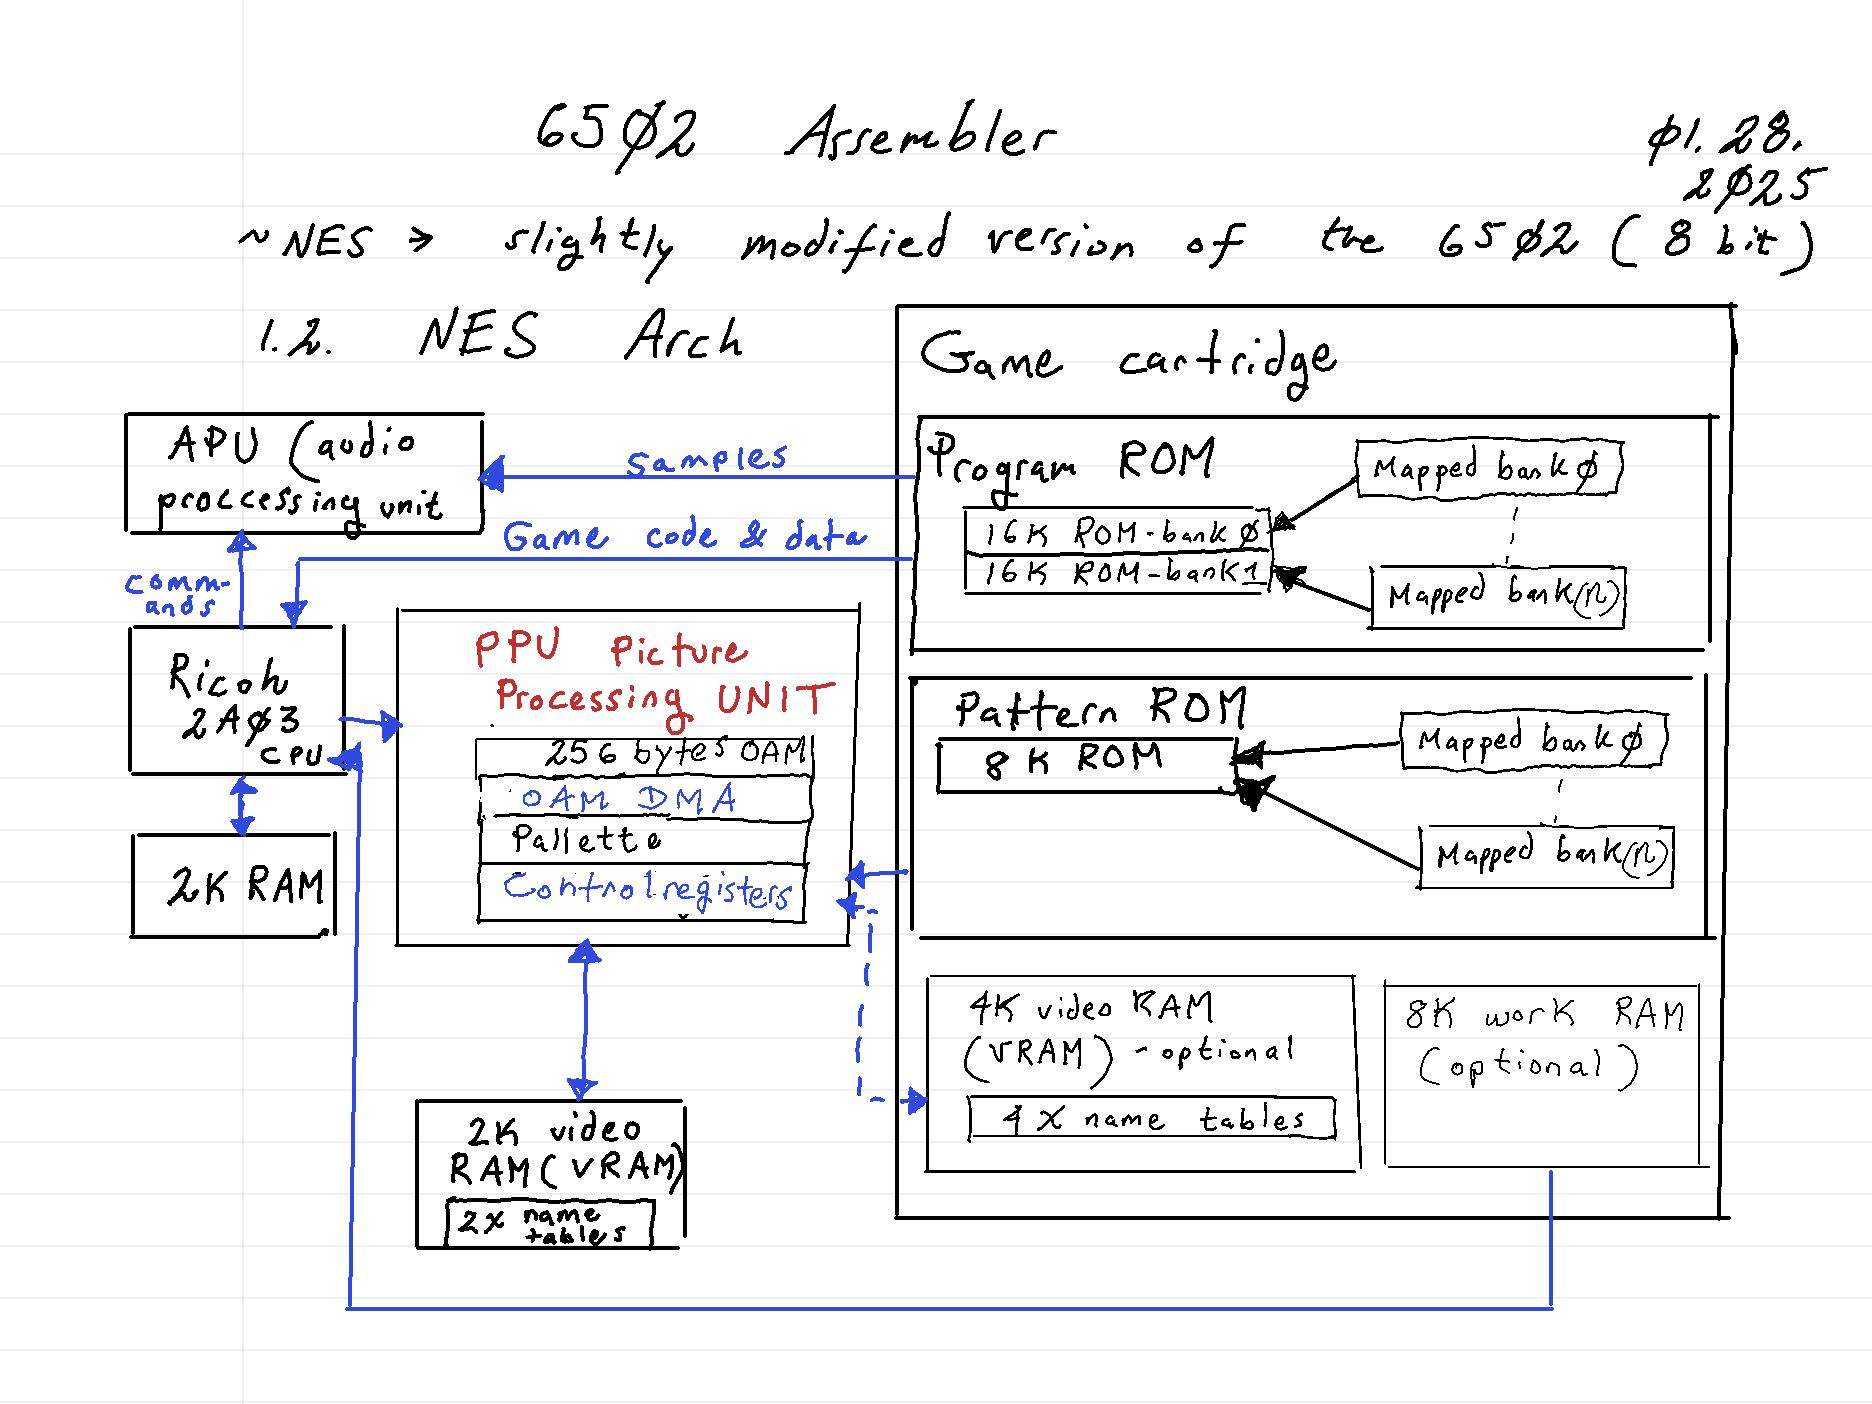 65Ø2 Assembler
Ø1.28.
2Ø25
~NES → slightly modified version of the 65Ø2 (8 bit)
1.2. NES Arch
APU (audio
proccessing unit
comm-
ands
samples
Game code & data
Ricoh
2AØ3
CPU
2K RAM
PPU Picture
Processing UNIT
256 bytes OAM
OAM DMA
Pallette
Control registers
2K video
RAM (VRAM)
2x name
tables
Game cartridge
Program ROM
16K ROM-bank Ø
16K ROM-bank 1
Mapped bank Ø
Mapped bank (n)
Pattern ROM
8K ROM
Mapped bank Ø
Mapped bank (n)
4K video RAM
(VRAM) - optional
4 X name tables
8K work RAM
(optional)